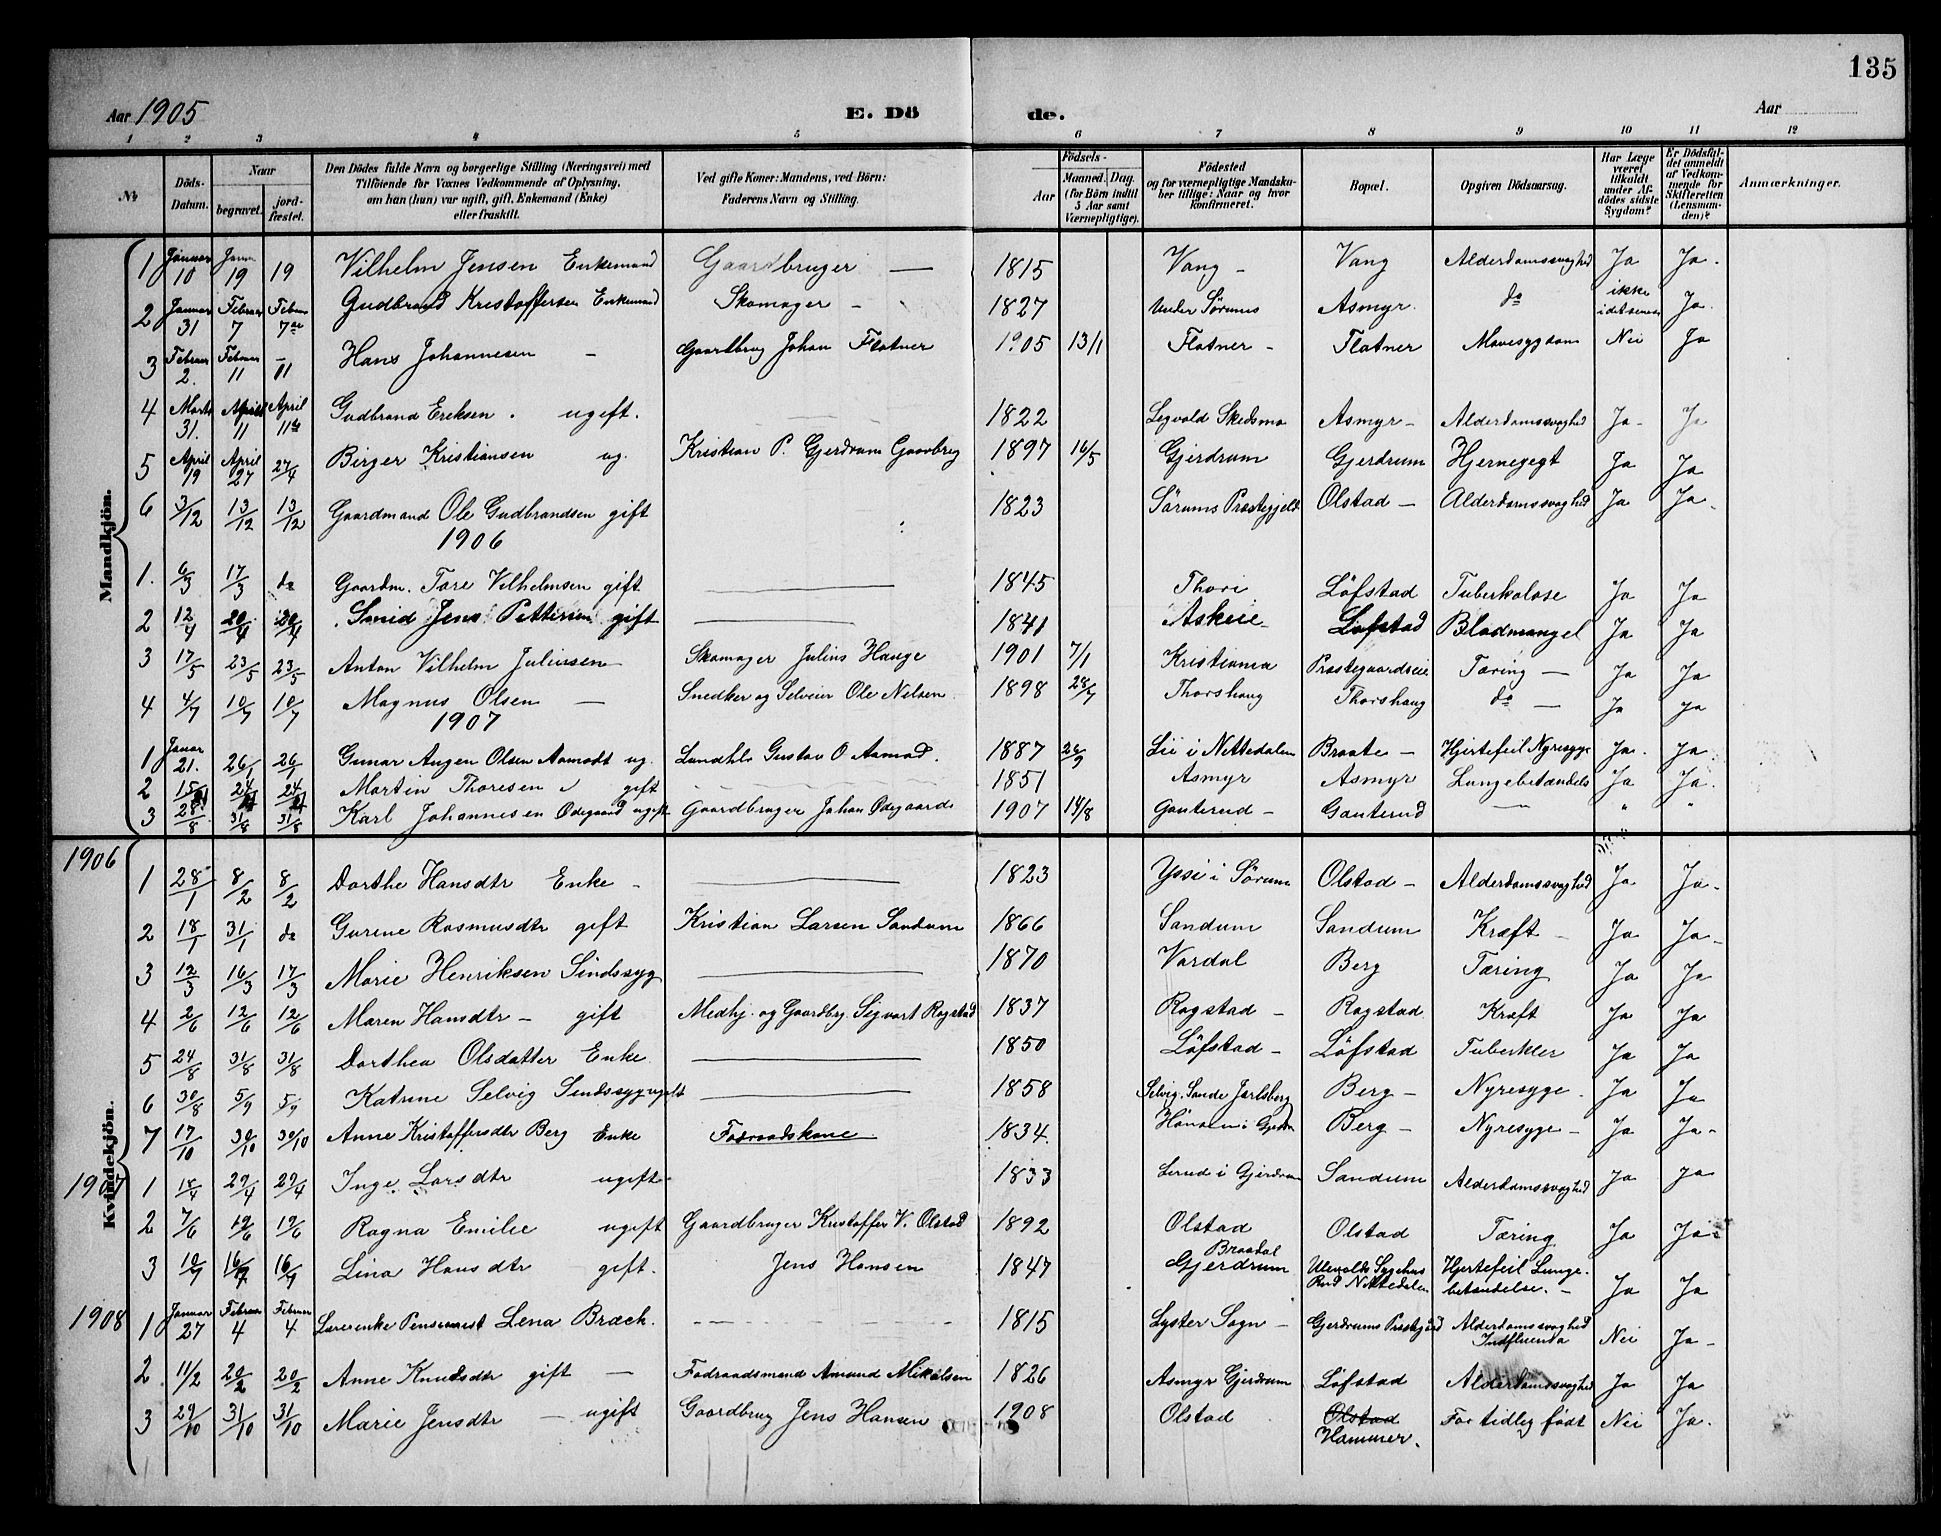 135
Aar 1905 E. Dö de. Aar
1 2 3 4 5 6 7 8 9 10 11 12
№ Döds-Datum. Naar begravet. jord-fæstet. Den Dödes fulde Navn og borgerlige Stilling (Næringsvei) med Tilföiende for Voxnes Vedkommende af Oplysning, om han (hun) var ugift, gift, Enkemand (Enke) eller fraskilt. Ved gifte Koner: Mandens, ved Börn: Faderens Navn og Stilling. Födsels- Aar Maaned. Dag. (for Börn indtil 5 Aar samt Værnepligtige). Födested og for værnepligtige Mandskaber tillige: Naar og hvor konfirmeret. Bopæl. Opgiven Dödsaarsag. Har Læge været tilkaldt under Afdödes sidste Sygdom? Er Dödsfaldet anmeldt af Vedkommende for Skifteretten (Lensmanden)? Anmærkninger.
Mandkjön.
1 Januar 10 Janu 19 19 Vilhelm Jensen Enkemand Gaardbruger — 1815 Vang - Vang Alderdomssvaghed Ja Ja.
2 Januar 31 Februar 7 Febru 7de Gudbrand Kristoffersen Enkemand Skomager - 1827 Under Sörums Asmyr. do ikke i det senere Ja.
3 Februar 2. Februar 11 - 11 Hans Johannesen - Gaardbrug Johan Flatner 1905 13/1 Flatner - Flatner Mavesygdom Nei Ja
4 Marts 31. April 11 April 11te Gudbrand Eriksen. ugift. — 1822 Legvold Skedsmo Asmyr- Alderdomssvaghed Ja- Ja
5 April 19 April 27 27/4 Birger Kristiansen ug. Kristian P. Gjerdrum Gaardbrug 1897 16/5 Gjerdrum Gjerdrum Hjernegegt Ja Ja
6 3/12 13/12 13/12 Gaardmand Ole Gudbrandsen gift 1823 Sörums Præstegjeld Olstad - Alderdomssvaghed Ja Ja.
1906
1. 6/3 17/3 do Gaardm. Tore Vilhelmsen gift — 1845 Thori Löfstad Tuberkolose Ja Ja
2 12/4 20/4 20/4 Smid Jens Pettersen gift — 1841 Askeie Löfstad Blodmangel Ja Ja
3 17/5 23/5 23/5 Anton Vilhelm Juliussen Skomager Julius Hauge 1901 7/1 Kristiania Præstegaardseie Tæring — Ja Ja
4 4/7 10/7 10/7 Magnus Olsen — Snedker og Selveier Ole Nelsen 1898 28/7 Thorshaug Thorshaug do — Ja Ja
1907
1 Januar 21. 26/1 26/1 Gunar Augen Olsen Aamodt ug. Landhl. Gustav O Aamod. 1887 26/9 Lii i Nittedalen Braate - Hjertefeil Nyresyge Ja. Ja
2 15/ 24/ 24/ Martin Thoresen gift — 1851 Asmyr Asmyr Lungebetændels Ja Ja.
3 28/8 31/8 31/8 Karl Johannesen Ødegaard ugift Gaardbruger Johan Ødegaard 1907 14/8 Gauterud - Gauterud — " "
Kvindekjön.
1906
1 28/1 8/2 8/2 Dorthe Hansdtr Enke - — 1823 Yssi i Sörum Olstad - Alderdomssvaghed Ja Ja-
2 18/1 31/1 do Gurene Rasmusdtr gift Kristian Larsen Sandum 1866 Sandum Sandum Kræft - Ja Ja-
3 12/3 16/3 17/3 Marie Henriksen Sindssyg — 1870 Vardal Berg Tæring Ja Ja
4 2/6 12/6 12/6 Maren Hansdtr - gift Medhj. og Gaardbg. Sigvart Rogstad 1837 Rogstad - Rogstad Kræft Ja Ja
5 24/8 31/8 31/8 Dorthea Olsdatter Enke — 1850 Löfstad - Löfstad Tuberkler Ja Ja
6 30/8 5/9 5/9 Katrine Selvig Sindssyg ugift — 1858 Selvig. Sande Jarlsberg Berg - Nyresyge. Ja Ja
7 17/10 30/10 30/10 Anne Kristoffersdtr Berg Enke Foderaadskone 1834. Hönsen i Gjerdr Berg - Nyresyge - Ja Ja-
1907 1 18/4 29/4 29/4 Inge Larsdtr ugift — 1833 Lerud i Gjerdrum Sandum Alderdomssvaghed Ja Ja
2 7/6 19/6 19/6 Ragna Emilie ugift Gaardbruger Kristoffer V. Olstad 1892 Olstad Olstad Tæring Ja Ja-
3 10/7 16/7 16/7 Lina Hansdtr gift. Jens Hansen 1847 Braadal Gjerdrum Ulevolds Sygehus Rud Nittedalen Hjertefeil Lungebetændelse. - Ja Ja
1908 1 Januar 27 Februar 4 Februar 4 Lærerenke Pensionist Lena Bræck. — 1815 Lyster Sogn - Gjerdrums Præstgjeld Alderdomssvaghed Indfluenta Nei Ja-
2 11/2 20/2 20/2 Anne Knudsdtr gift — Fodraadsmand Amund Mikalsen 1826 Asmyr Gjerdrum Löfstad Alderdomssvaghed Ja Ja
3 29/10 31/10 31/10 Marie Jensdtr — ugift Gaardbrug Jens Hansen 1908 Olstad Olstad Hammer. For tidlig födt Nei Ja.